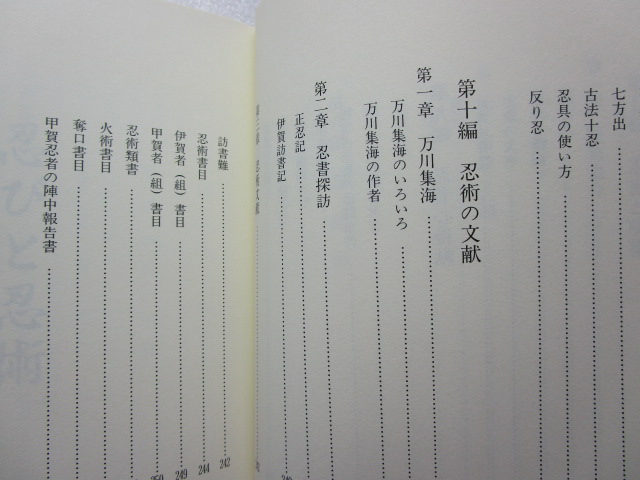 七方出
古法十忍
忍具の使い方
反り忍
第十編 忍術の文献
第一章 万川集海
万川集海のいろいろ
万川集海の作者
第二章 忍書探訪
正忍記
伊賀訪書記
訪書難 242
忍術書目 244
伊賀者(組)書目 249
甲賀者(組)書目 250
忍術類書
火術書目
奪口書目
甲賀忍者の陣中報告書